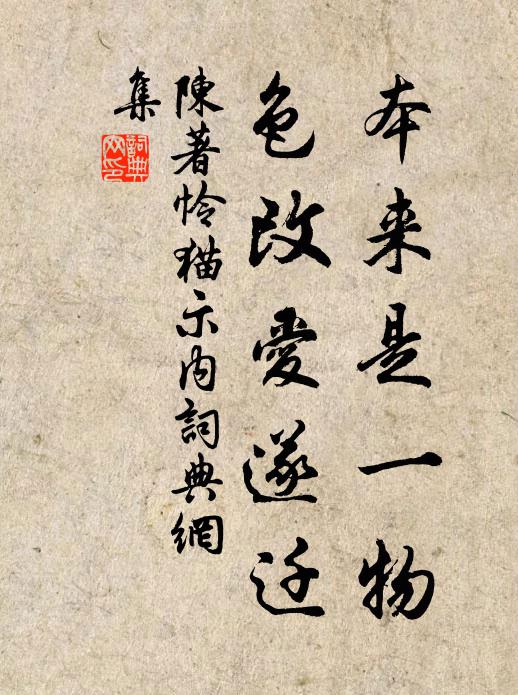 本来是一物
色改愛遂迁
陳著怜猫示内詞典網
集
詞典
网印